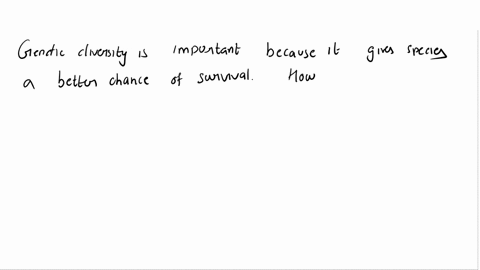 Genetic diversity is important because it gives species
a better chance of survival. How